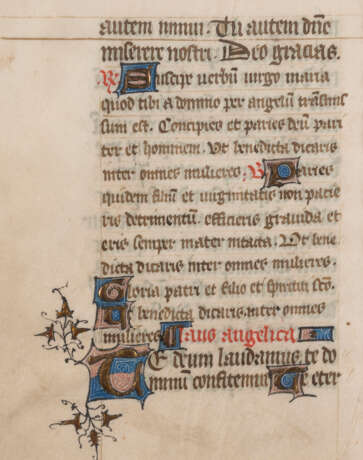 autem nimui. Tu autem dñe
miserere nostri. Deo gracias.
R Suscipe verbũ virgo maria
quod tibi a domino per angelũ transmis
sum est. Concipies et paries deũ pari
ter et hominem. Ut benedicta dicaris
inter omnes mulieres. V Paries
quidem filiũ et virginitatis non pacie
ris detrimentũ. efficieris gravida et
eris semper mater intacta. Ut bene
dicta dicaris inter omnes mulieres.
Gloria patri et filio et spiritui scõ.
Ut benedicta dicaris. inter omnes
mulieres. Laus angelica
Te deum laudamus. te do
minum confitemur. Te eter